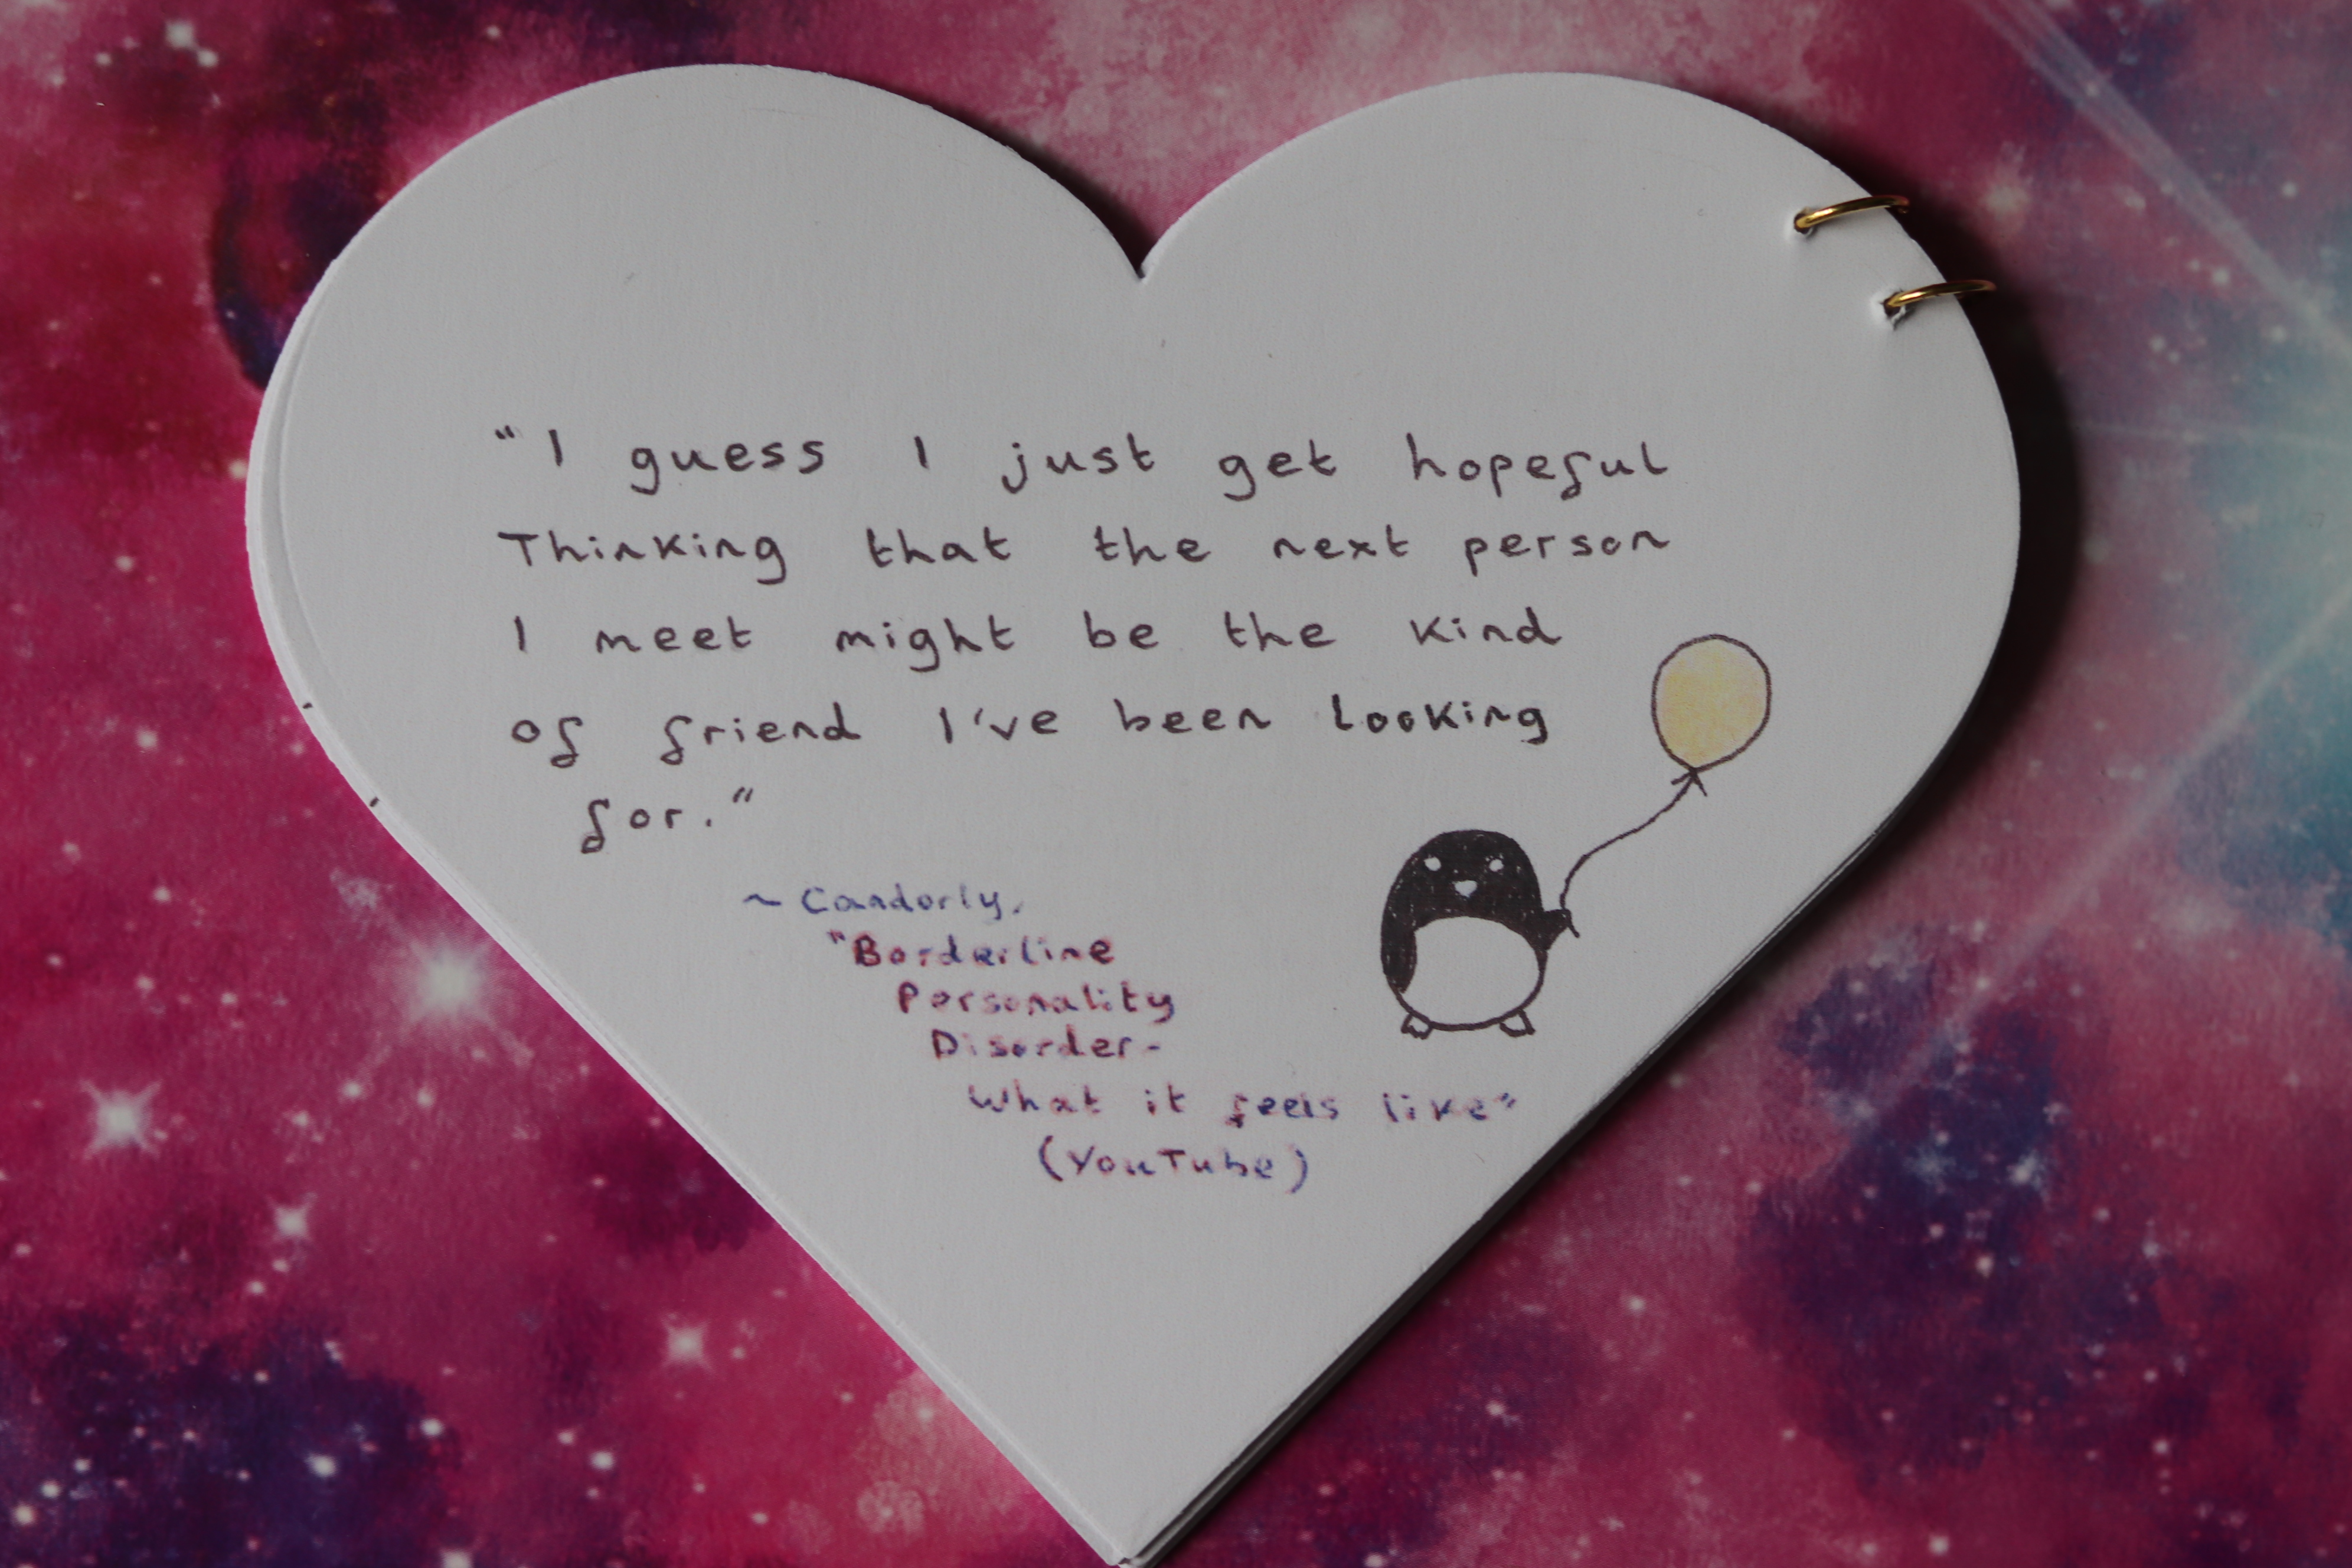 "I guess I just get hopeful
Thinking that the next person
I meet might be the kind
of friend I've been looking
for."
~ Candorly,
"Borderline
Personality
Disorder-
What it feels like"
(YouTube)